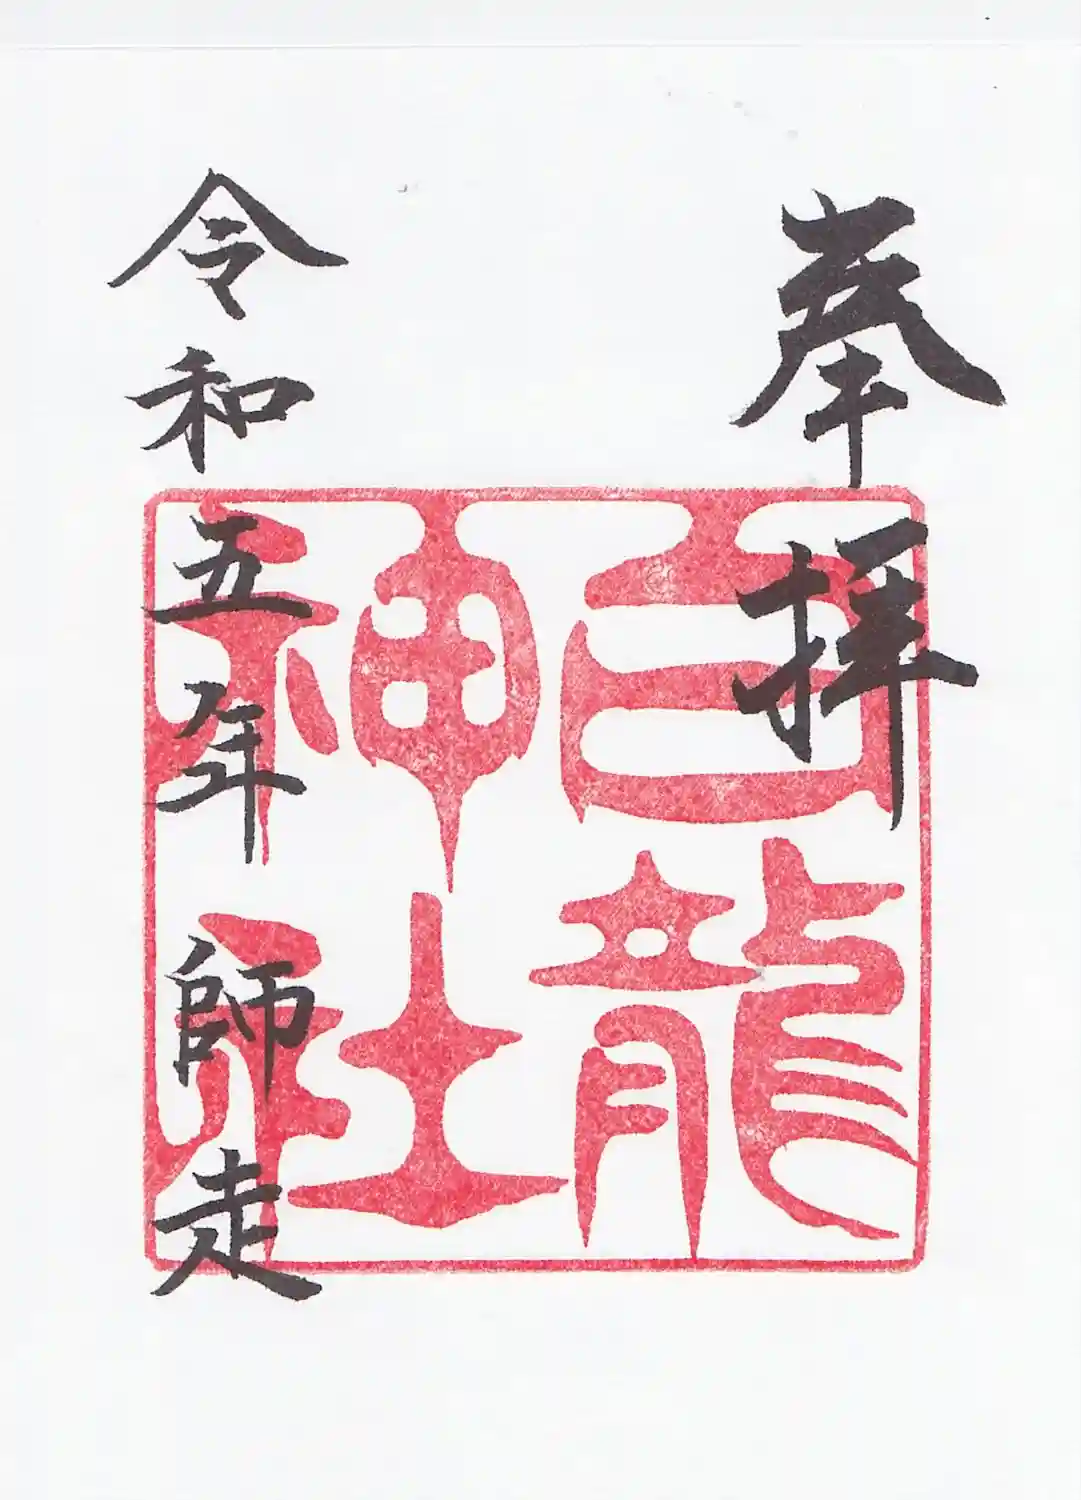 奉拝
白龍
神社
令和五年師走